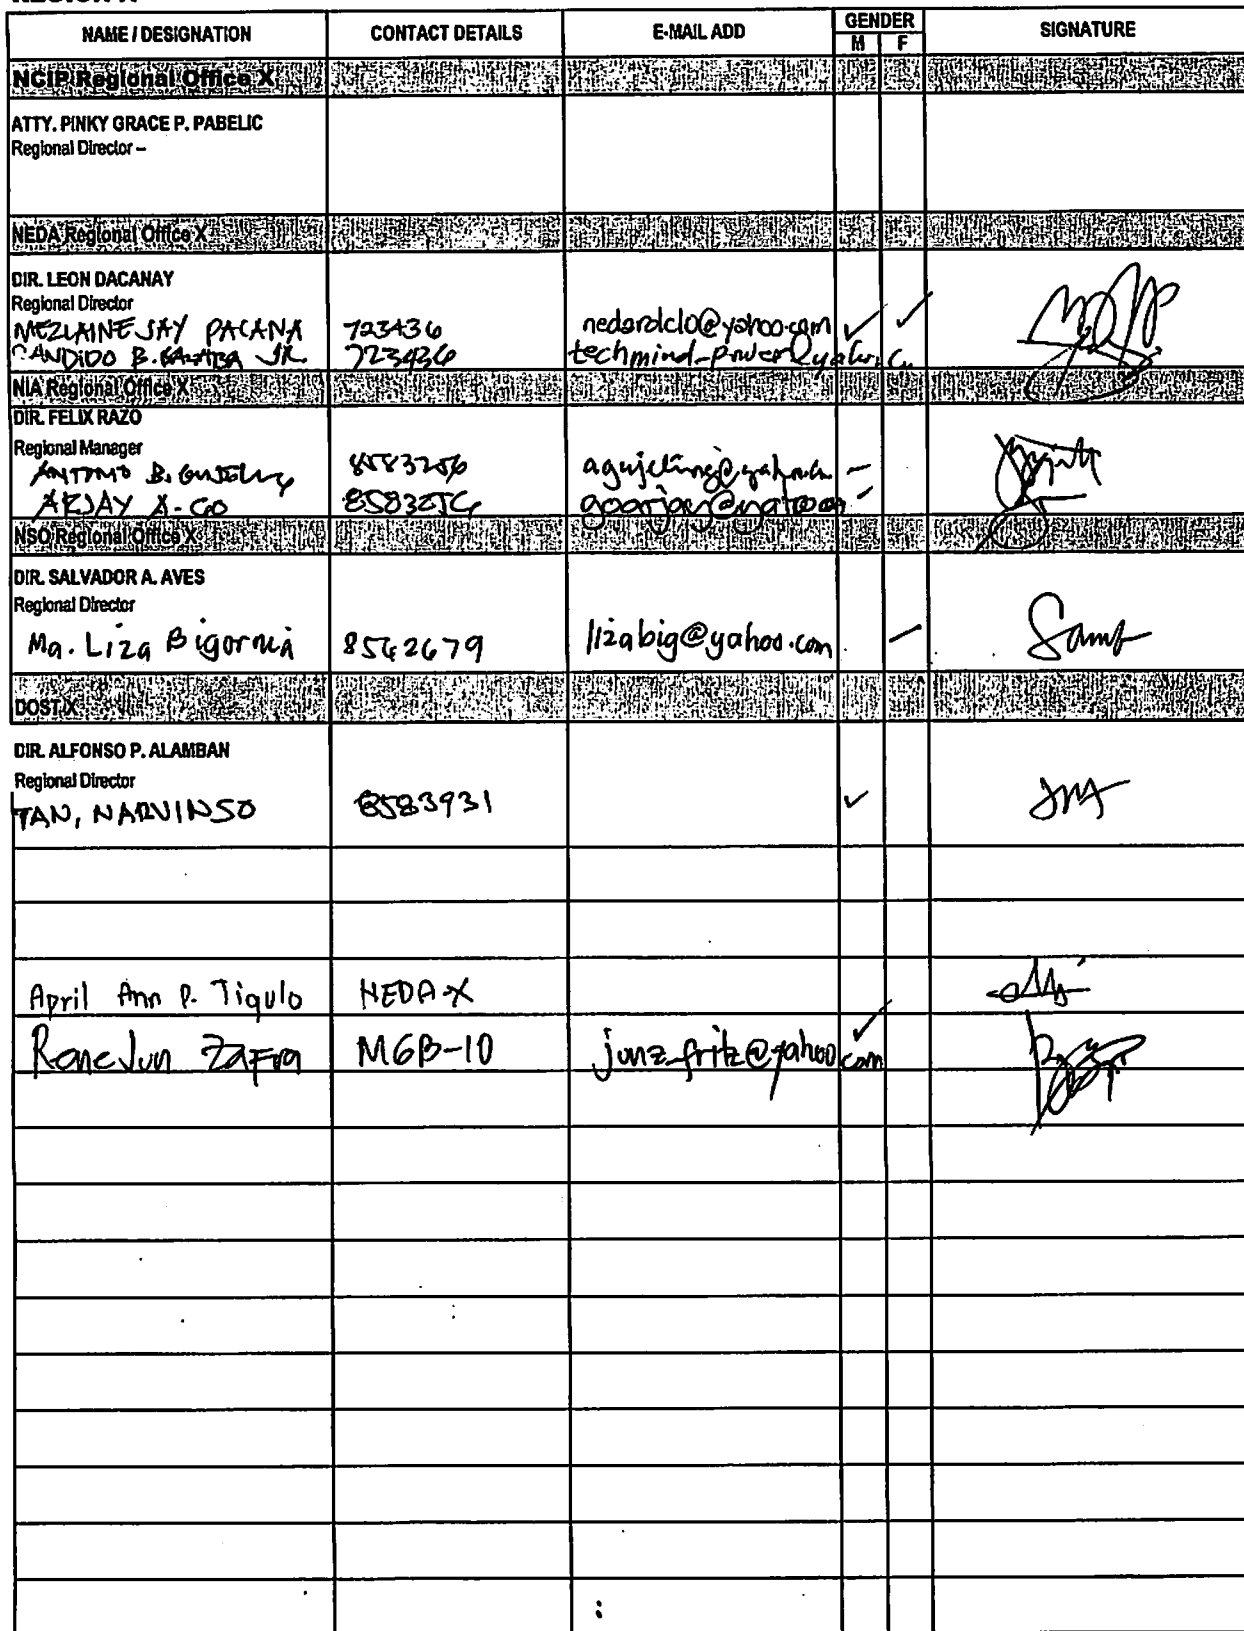 NAME / DESIGNATION CONTACT DETAILS E-MAIL ADD GENDER SIGNATURE
M F
NCIP Regional Office X
ATTY. PINKY GRACE P. PABELIC
Regional Director –
NEDA Regional Office X
DIR. LEON DACANAY
Regional Director
MEZLAINE JAY PACANA 723436
CANDIDO B. JR. 7233436
NIA Regional Office X
DIR. FELIX RAZO
Regional Manager
ANTONIO B. 8583256
ARJAY A. GO 8583256
NSO Regional Office X
DIR. SALVADOR A. AVES
Regional Director
Ma. Liza Bigornia 8562679 lizabig@yahoo.com
DOST X
DIR. ALFONSO P. ALAMBAN
Regional Director
TAN, NARVINSO 8583931
April Ann P. Tigulo NEDA-X
Rone Jun Zafra MGB-10 junz_fritz@yahoo.com